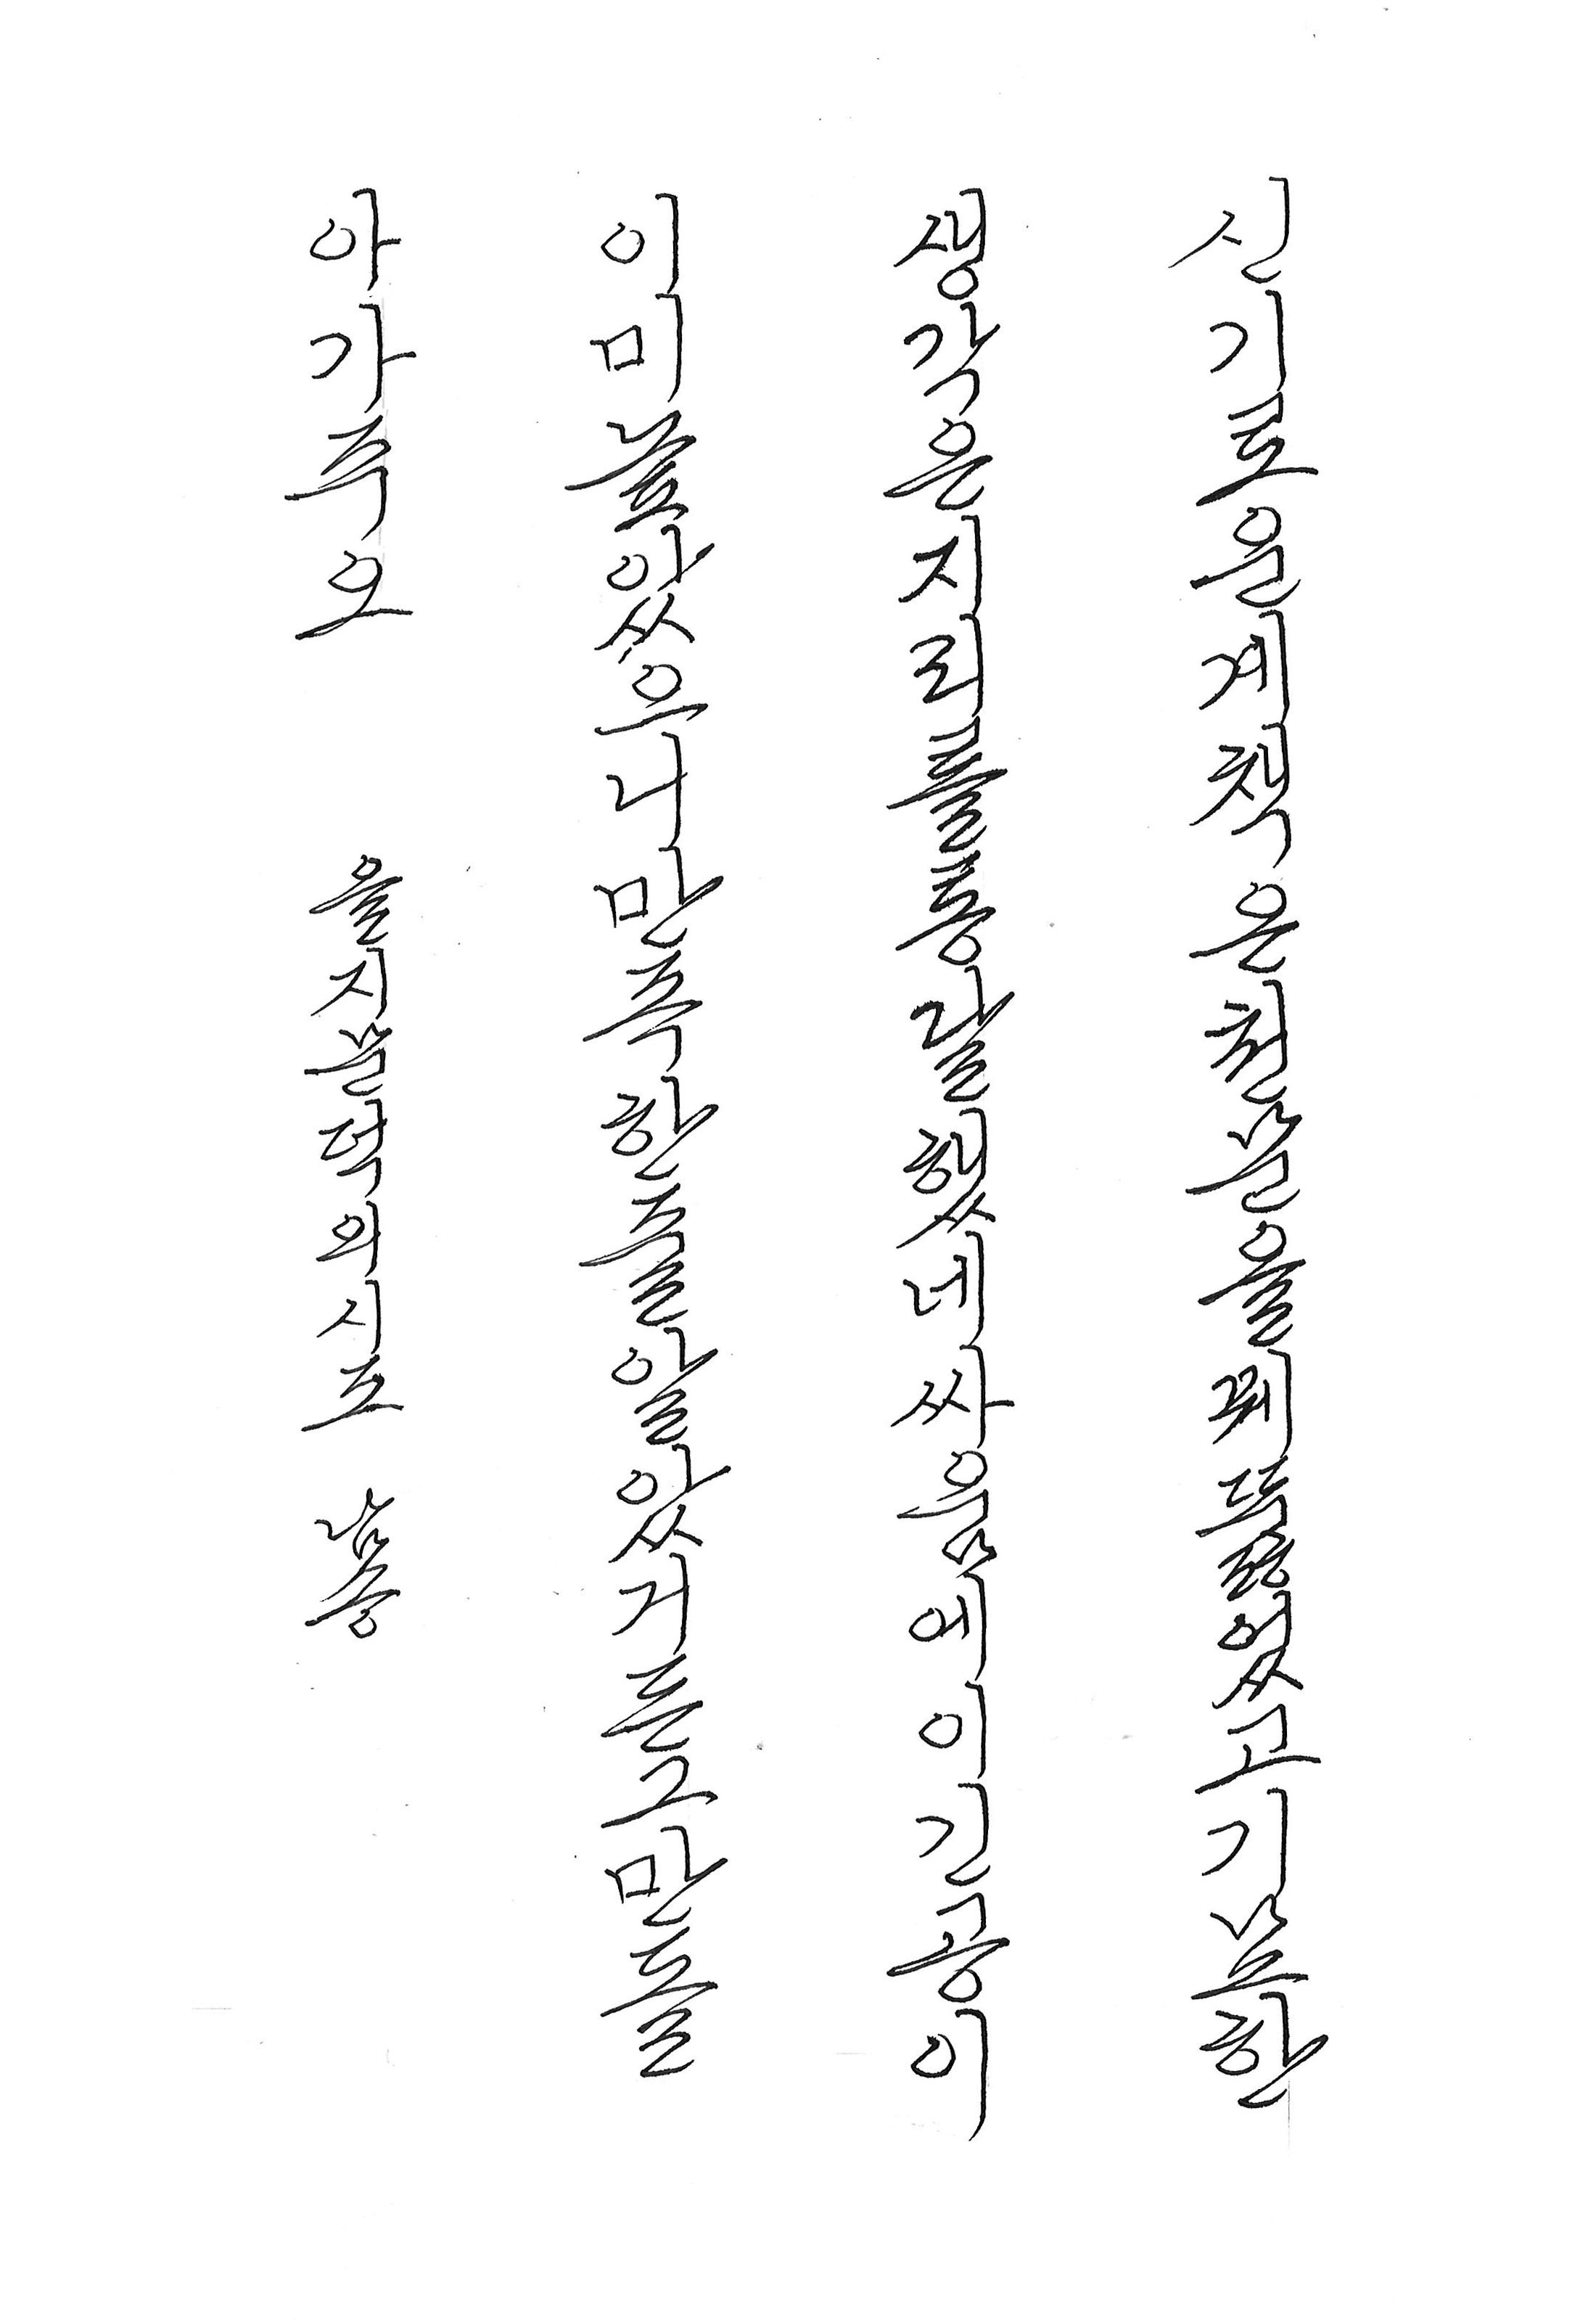 신기로운계책은천문을꿰뚫었고기묘한
생각은지리를통달했네싸움에이긴공이
이미높았으니만족한줄알았거든그만돌
아가주오 을지문덕의시조 남송